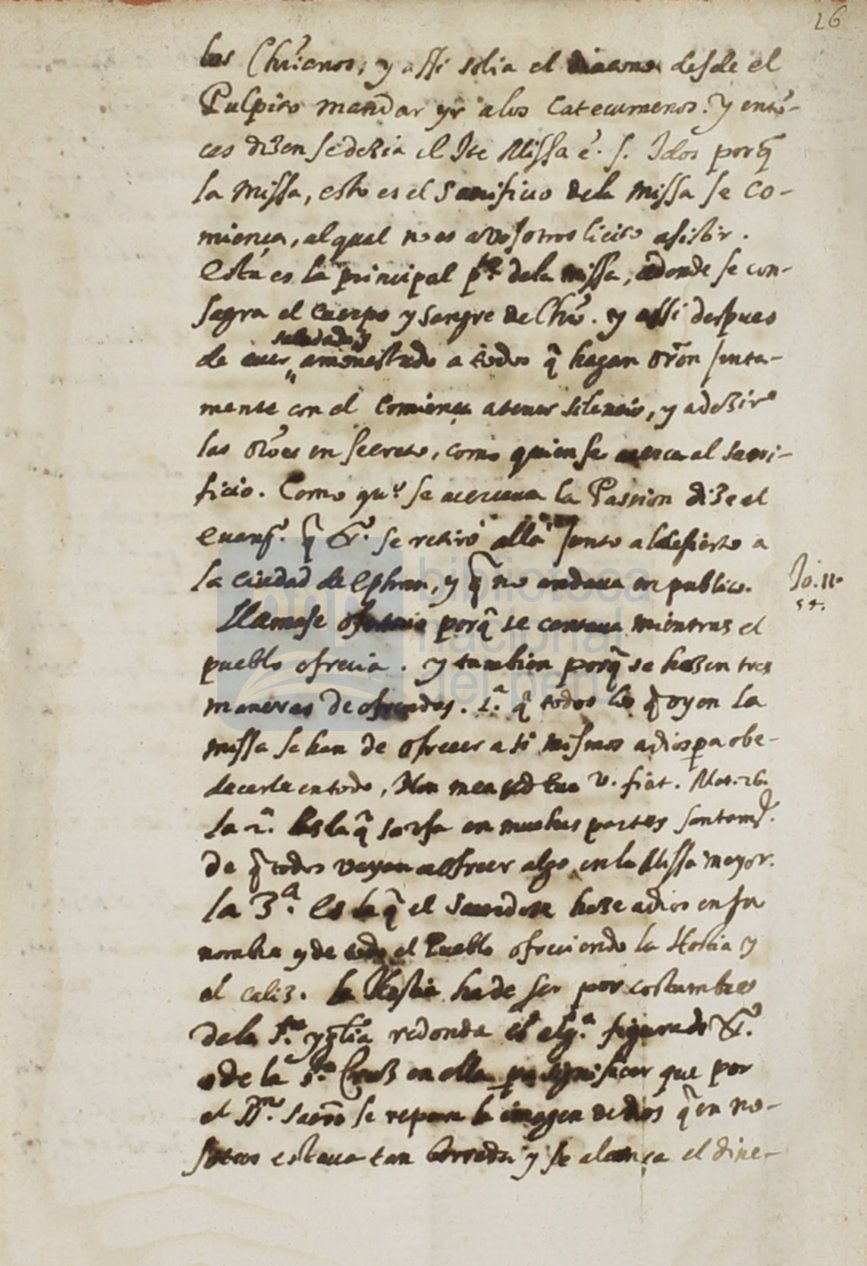 26
los Chr̃ianos, y assi solia el diacono desde el
Pulpito mandar yr alos Catecumenos. Y entõ-
ces dizen se dezia el Ite Missa ẽ. s. Idos porq̃
la Missa, esto es el Sacrificio dela Missa se co-
miença, al qual no es a vosotros licito asistir.
Esta es la principal pte. dela missa, adonde se con-
sagra el cuerpo y sangre de Chrõ. y assi despues
saludado, y
de auer amonestado a todos q̃ hagan orõn junta-
mente con el comiença a tener silencio, y a dezir
las orões en secreto, como quien se acerca al sacri-
ficio. Como que se acercaua la Passion dize el
euang.ª q̃ X.º se retiro alla junto al desierto a
la ciudad de Ephren, y q̃ no andaua en publico.
Jo. 11.
54.
Llamase ofertorio porq̃ se cantaua mientras el
pueblo ofrecia. y tambien porq̃ se hazen tres
maneras de ofrendas. 1.ª q̃ todos los q̃ oyen la
missa se han de ofrecer a si mismos a dios pa obe-
decerle en todo, Non mea sed tua v. fiat. Mat. 26.
La 2.ª es la q̃ se usa en muchas partes
de q̃ todos vayan a ofrecer algo en la Missa mayor.
La 3.ª es la q̃ el Sacerdote haze a dios en su
nombre y de todo el Pueblo ofreciendo la Hostia y
el caliz. la Hostia ha de ser por costumbre
dela S.ta yglia redonda figura de X.º
o de la S.ta Cruz en ella pa significar que por
el Sacrõ se repara la imagen de dios q̃ en no-
sotros estaua tan borrada y se alcança el dine-